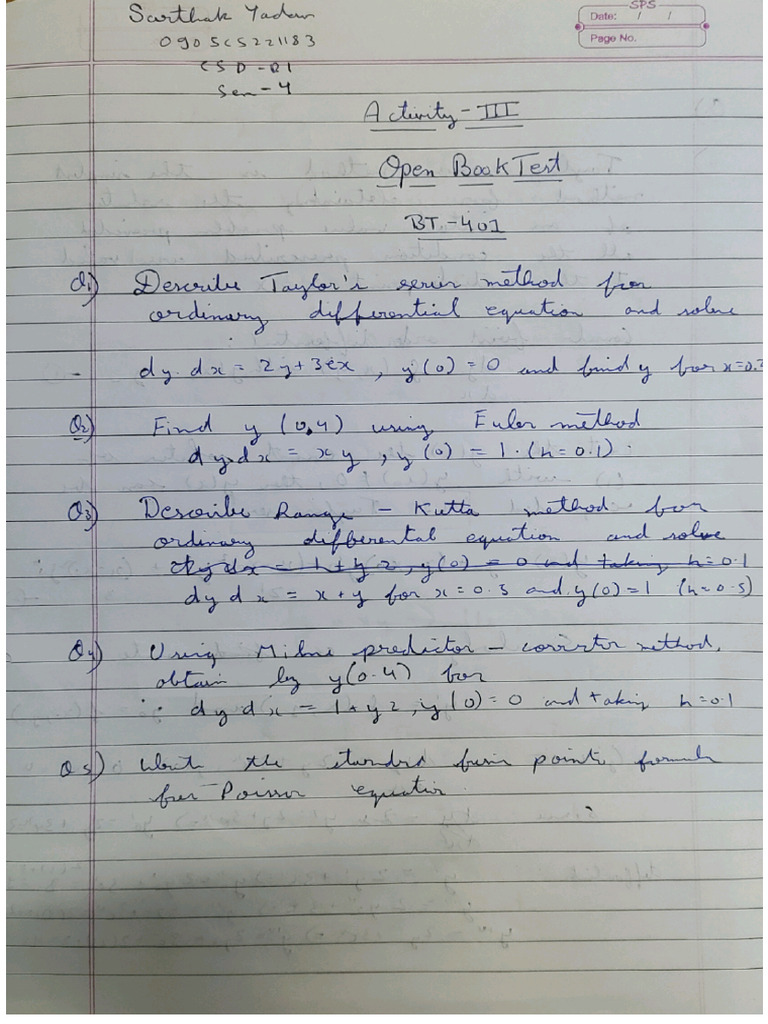 Sarthak Yadav
0905CS221183
CSD-01
Sem-4
SPS
Date: / /
Page No.
Activity-III
Open Book Test
BT-401
Q1) Describe Taylor's series method for
ordinary differential equation and solve
dy.dx = 2y+3ex, y(0)=0 and find y for x=0.2
Q2) Find y (0.4) using Euler method
dydx = xy, y(0) = 1. (h=0.1).
Q3) Describe Range - Kutta method for
ordinary differental equation and solve
dydx = 1+y2, y(0) = 0 and taking h=0.1
dydx = x+y for x=0.5 and y(0)=1 (h=0.5)
Q4) Using Milne predictor - corrector method,
obtain by y(0.4) for
dydx = 1+y2, y(0)=0 and taking h=0.1
Q5) Write the standard five points formula
for Poisson equation.